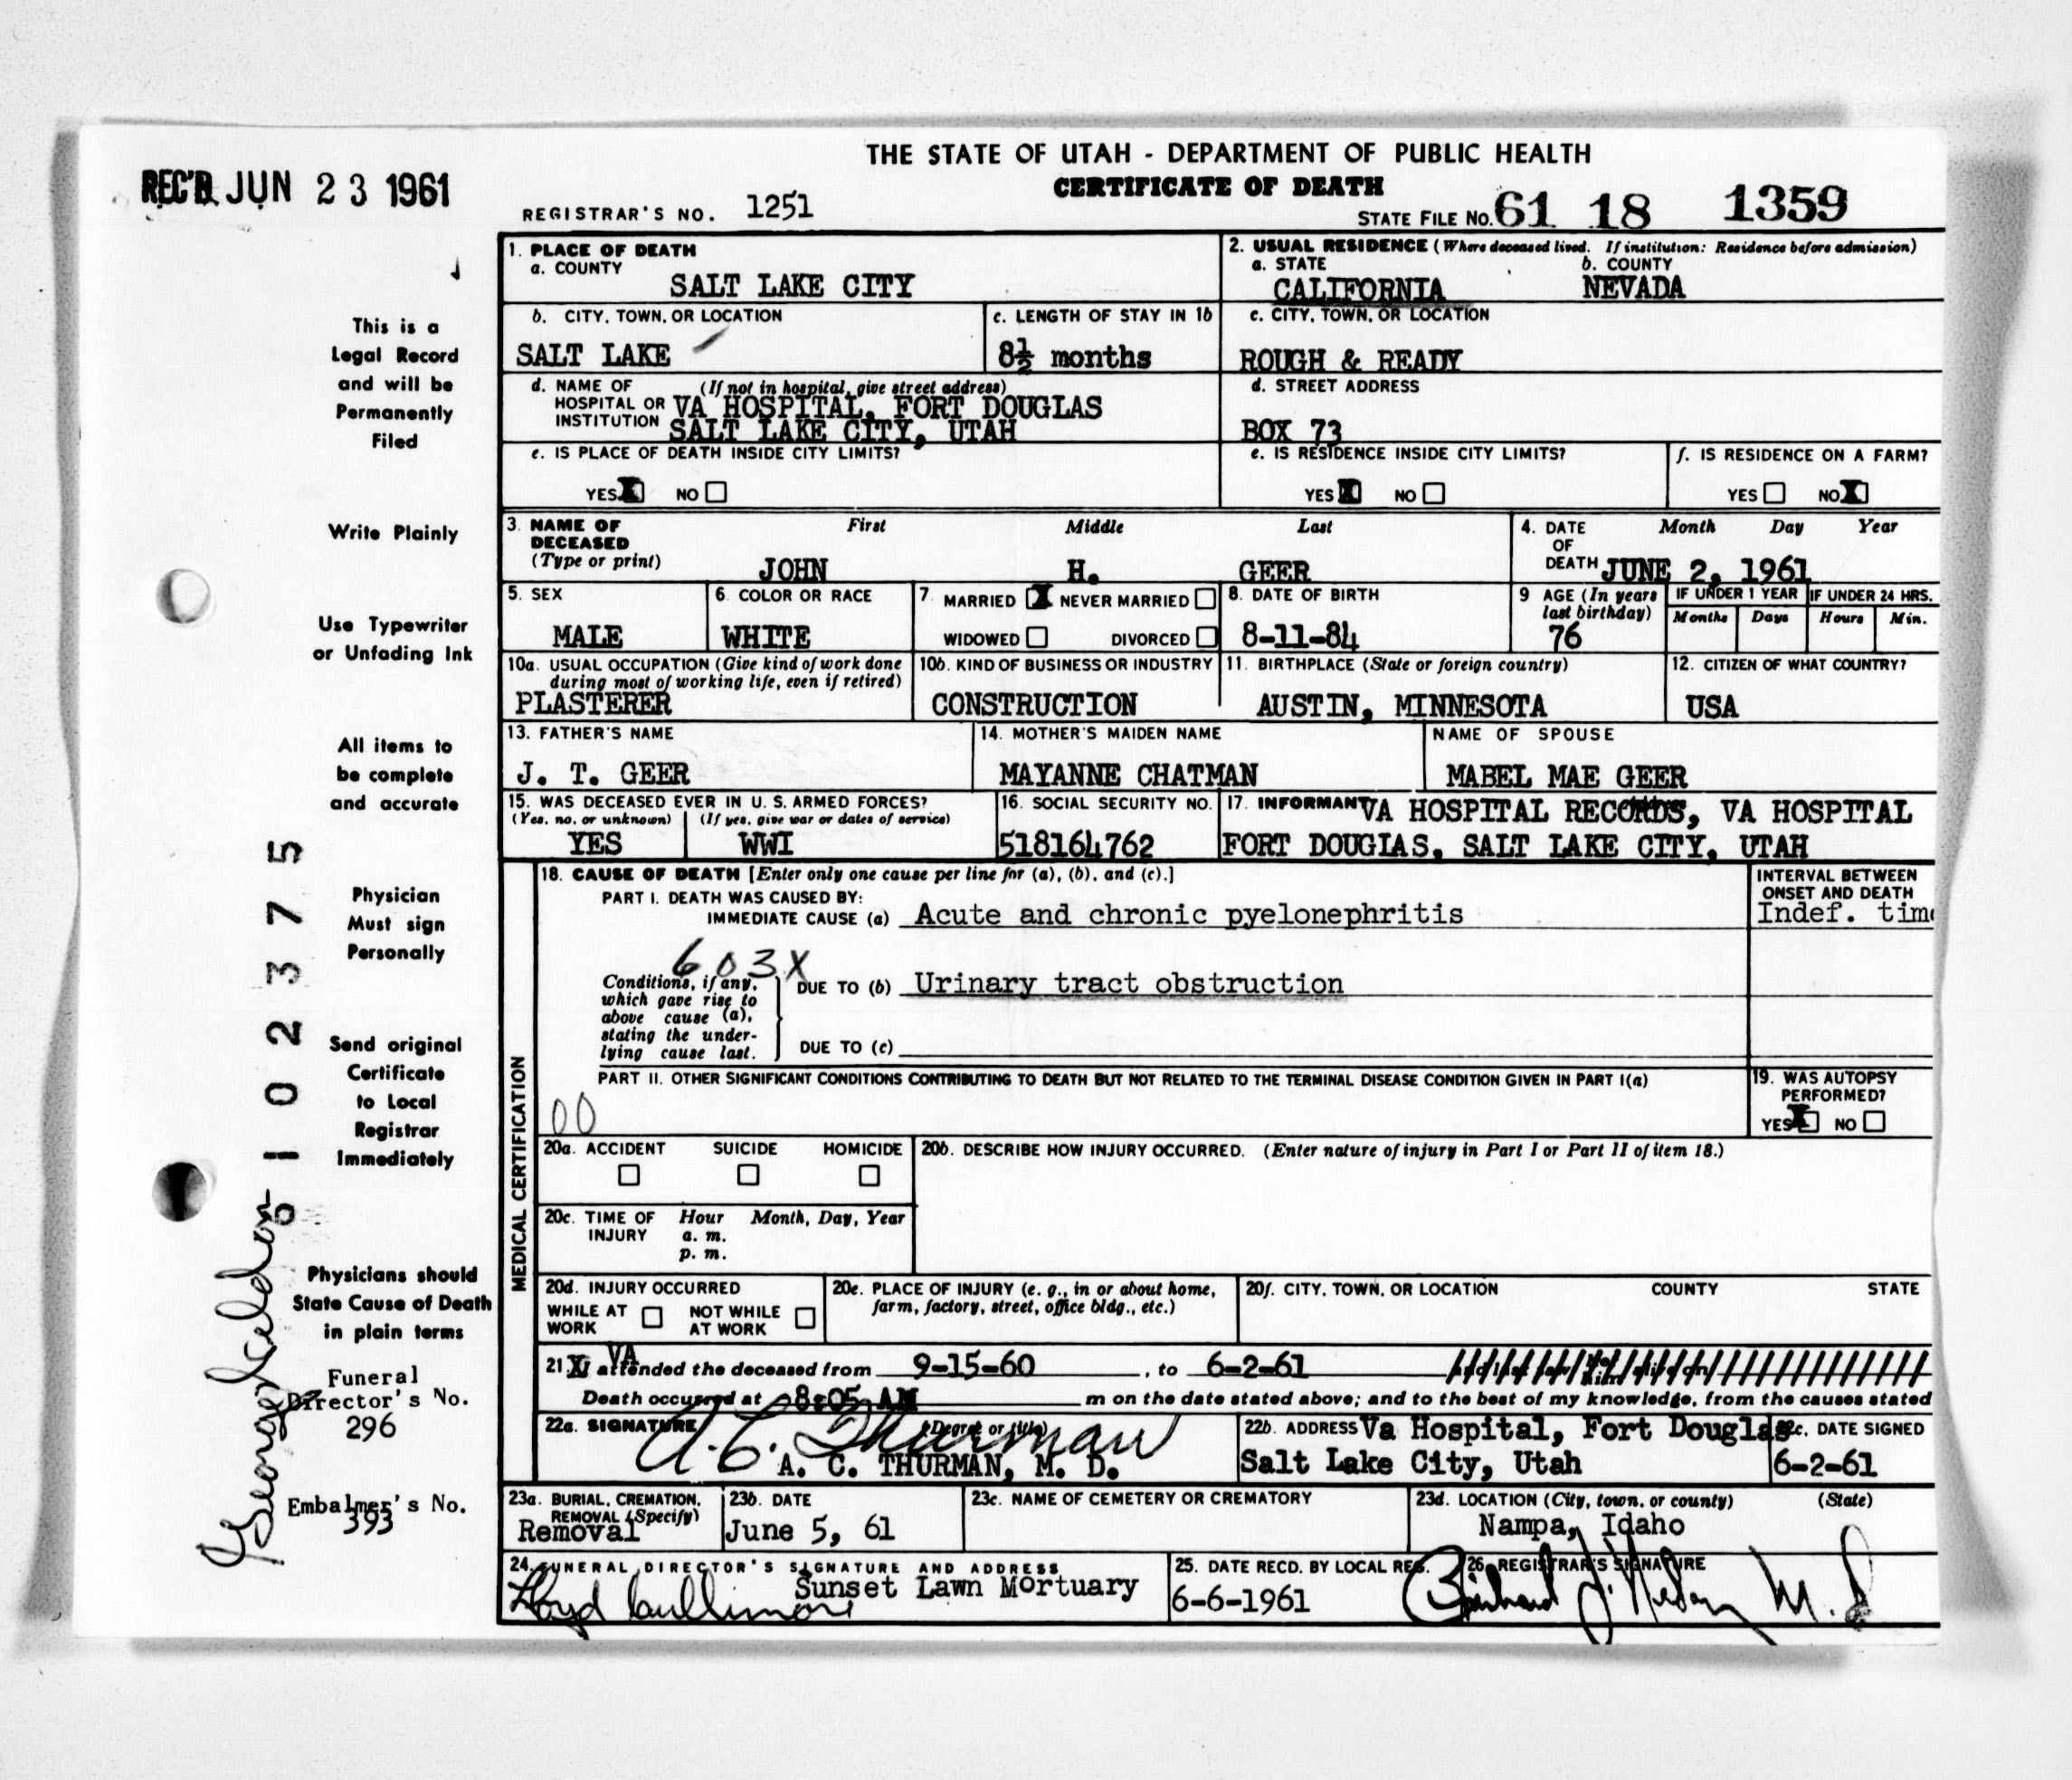 THE STATE OF UTAH - DEPARTMENT OF PUBLIC HEALTH
CERTIFICATE OF DEATH
REC'D JUN 23 1961
REGISTRAR'S NO. 1251
STATE FILE NO. 61 18 1359
This is a
Legal Record
and will be
Permanently
Filed
Write Plainly
Use Typewriter
or Unfading Ink
All items to
be complete
and accurate
Physician
Must sign
Personally
Send original
Certificate
to Local
Registrar
Immediately
Physicians should
State Cause of Death
in plain terms
Funeral
Director's No.
296
Embalmer's No.
393
6102375
George
1. PLACE OF DEATH
a. COUNTY
SALT LAKE CITY
2. USUAL RESIDENCE (Where deceased lived. If institution: Residence before admission)
a. STATE b. COUNTY
CALIFORNIA NEVADA
b. CITY, TOWN, OR LOCATION
SALT LAKE
c. LENGTH OF STAY IN 1b
8½ months
c. CITY, TOWN, OR LOCATION
ROUGH & READY
d. NAME OF (If not in hospital, give street address)
HOSPITAL OR VA HOSPITAL, FORT DOUGLAS
INSTITUTION SALT LAKE CITY, UTAH
d. STREET ADDRESS
BOX 73
e. IS PLACE OF DEATH INSIDE CITY LIMITS?
YES X NO
e. IS RESIDENCE INSIDE CITY LIMITS?
YES X NO
f. IS RESIDENCE ON A FARM?
YES NO X
3. NAME OF First Middle Last
DECEASED
(Type or print) JOHN H. GEER
4. DATE Month Day Year
OF
DEATH JUNE 2, 1961
5. SEX
MALE
6. COLOR OR RACE
WHITE
7. MARRIED X NEVER MARRIED
WIDOWED DIVORCED
8. DATE OF BIRTH
8-11-84
9 AGE (In years
last birthday)
76
IF UNDER 1 YEAR IF UNDER 24 HRS.
Months Days Hours Min.
10a. USUAL OCCUPATION (Give kind of work done
during most of working life, even if retired)
PLASTERER
10b. KIND OF BUSINESS OR INDUSTRY
CONSTRUCTION
11. BIRTHPLACE (State or foreign country)
AUSTIN, MINNESOTA
12. CITIZEN OF WHAT COUNTRY?
USA
13. FATHER'S NAME
J. T. GEER
14. MOTHER'S MAIDEN NAME
MAYANNE CHATMAN
NAME OF SPOUSE
MABEL MAE GEER
15. WAS DECEASED EVER IN U. S. ARMED FORCES?
(Yes, no, or unknown) (If yes, give war or dates of service)
YES WWI
16. SOCIAL SECURITY NO.
518164762
17. INFORMANT VA HOSPITAL RECORDS, VA HOSPITAL
FORT DOUGLAS, SALT LAKE CITY, UTAH
MEDICAL CERTIFICATION
18. CAUSE OF DEATH [Enter only one cause per line for (a), (b), and (c).]
PART I. DEATH WAS CAUSED BY:
IMMEDIATE CAUSE (a) Acute and chronic pyelonephritis
INTERVAL BETWEEN
ONSET AND DEATH
Indef. time
603X
Conditions, if any,
which gave rise to
above cause (a),
stating the under-
lying cause last.
DUE TO (b) Urinary tract obstruction
DUE TO (c)
PART II. OTHER SIGNIFICANT CONDITIONS CONTRIBUTING TO DEATH BUT NOT RELATED TO THE TERMINAL DISEASE CONDITION GIVEN IN PART I(a)
00
19. WAS AUTOPSY
PERFORMED?
YES X NO
20a. ACCIDENT SUICIDE HOMICIDE
20b. DESCRIBE HOW INJURY OCCURRED. (Enter nature of injury in Part I or Part II of item 18.)
20c. TIME OF Hour Month, Day, Year
INJURY a. m.
p. m.
20d. INJURY OCCURRED
WHILE AT NOT WHILE
WORK AT WORK
20e. PLACE OF INJURY (e. g., in or about home,
farm, factory, street, office bldg., etc.)
20f. CITY, TOWN, OR LOCATION COUNTY STATE
21. VA attended the deceased from 9-15-60, to 6-2-61
Death occurred at 8:05 AM m on the date stated above; and to the best of my knowledge, from the causes stated
22a. SIGNATURE (Degree or title)
A. C. Thurman
A. C. THURMAN, M. D.
22b. ADDRESS Va Hospital, Fort Douglas
Salt Lake City, Utah
22c. DATE SIGNED
6-2-61
23a. BURIAL, CREMATION,
REMOVAL (Specify)
Removal
23b. DATE
June 5, 61
23c. NAME OF CEMETERY OR CREMATORY
23d. LOCATION (City, town, or county) (State)
Nampa, Idaho
24. FUNERAL DIRECTOR'S SIGNATURE AND ADDRESS
Sunset Lawn Mortuary
Lloyd Cullimore
25. DATE RECD. BY LOCAL REG.
6-6-1961
26. REGISTRAR'S SIGNATURE
M.D.